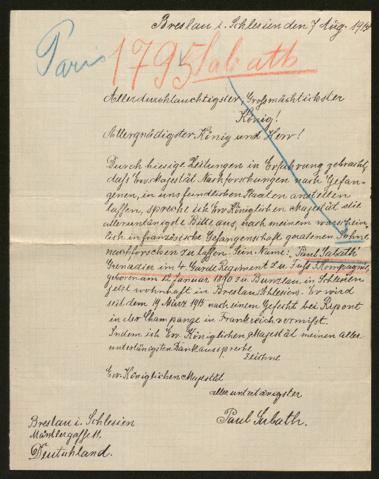 Breslau i. Schlesien den 7 Aug. 191
Paris
1795 Sabath
Allerdurchlauchtigster, Großmächtickster
König!
Allergnädigster König und Herr!
Durch hiesige Zeitungen in Erfahrung gebracht,
daß Ew. Majestät Nachforschungen nach Gefan-
genen, in uns feindlichen Staaten anstellen
lassen, spreche ich Ew. Königlichen Majestät die
alleruntertänigste Bitte aus, nach meinem
in französische Gefangenschaft geratenen Sohne
nachforschen zu lassen. Sein Name: Paul Sabath
Grenadier im 4. Garde Regiment zu Fuß Kompagnie,
geboren am 12. Januar zu Bunzlau in Schlesien
jetzt wohnhaft in Breslau Schlesien. Er wird
seit dem 19. März 1915 nach einem Gefecht bei Ripont
in der Champange in Frankreich vermißt.
Indem ich Ew. Königlichen Majestät meinen aller
untertänigsten Dank ausspreche
zeichne
Ew. Königlichen Majestät
alleruntertänigster
Paul Sabath.
Breslau i. Schlesien
11.
Deutschland.